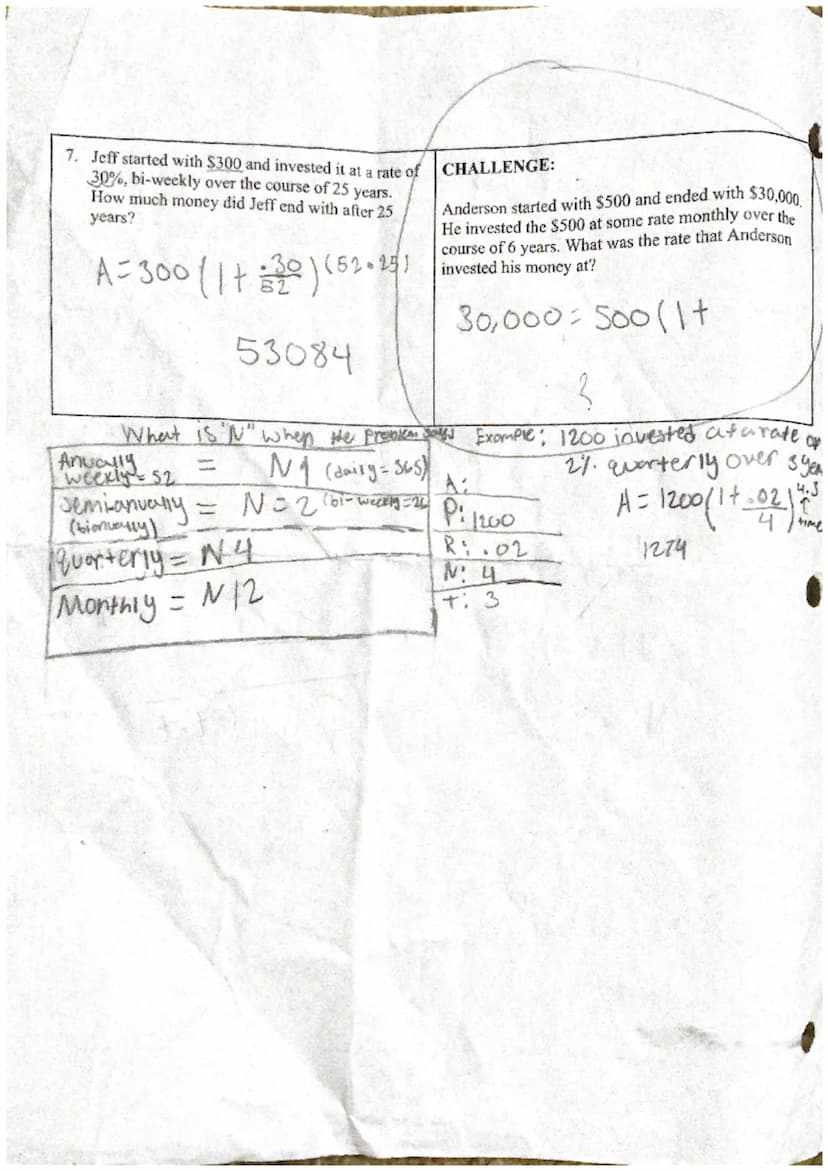 7. Jeff started with $300 and invested it at a rate of
30%, bi-weekly over the course of 25 years.
How much money did Jeff end with after 25
years?
A=300(1+.30/52)(52•25)
53084
CHALLENGE:
Anderson started with $500 and ended with $30,000.
He invested the $500 at some rate monthly over the
course of 6 years. What was the rate that Anderson
invested his money at?
30,000=500(1+
?
What is "N" when the problem says
Anually = N1 (daily=365)
weekly=52
Semianually = N=2 (bi-weekly=26
(bianually)
quarterly=N4
Monthly = N12
Example: 1200 invested at a rate of
2%. quarterly over 3 years
A:
P: 1200
R: .02
N: 4
t: 3
A=1200(1+.02/4)4.3
↑
time
1274